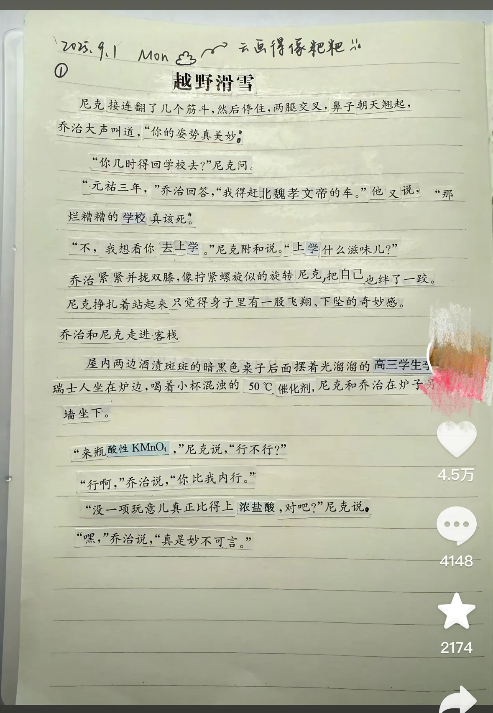 2025.9.1 Mon 云画得像粑粑
①
越野滑雪
尼克接连翻了几个筋斗,然后停住,两腿交叉,鼻子朝天翘起,
乔治大声叫道,“你的姿势真美妙;
“你几时得回学校去?”尼克问.
“元祐三年,”乔治回答,“我得赶北魏孝文帝的车。”他又说. “那
烂糟糟的学校真该死.”
“不,我想看你去上学。”尼克附和说。“上学什么滋味儿?”
乔治紧紧并拢双膝,像拧紧螺旋似的旋转尼克,把自己也绊了一跤。
尼克挣扎着站起来只觉得身子里有一股飞翔、下坠的奇妙感。
乔治和尼克走进客栈
屋内两边酒渍斑斑的暗黑色桌子后面摆着光溜溜的高三学生
瑞士人坐在炉边,喝着小杯混浊的 50℃ 催化剂,尼克和乔治在炉子
墙坐下。
“来瓶酸性 KMnO₄,”尼克说,“行不行?”
“行啊,”乔治说,“你比我内行。”
“没一项玩意儿真正比得上浓盐酸,对吧?”尼克说.
“嘿,”乔治说,“真是妙不可言。”
4.5万
4148
2174